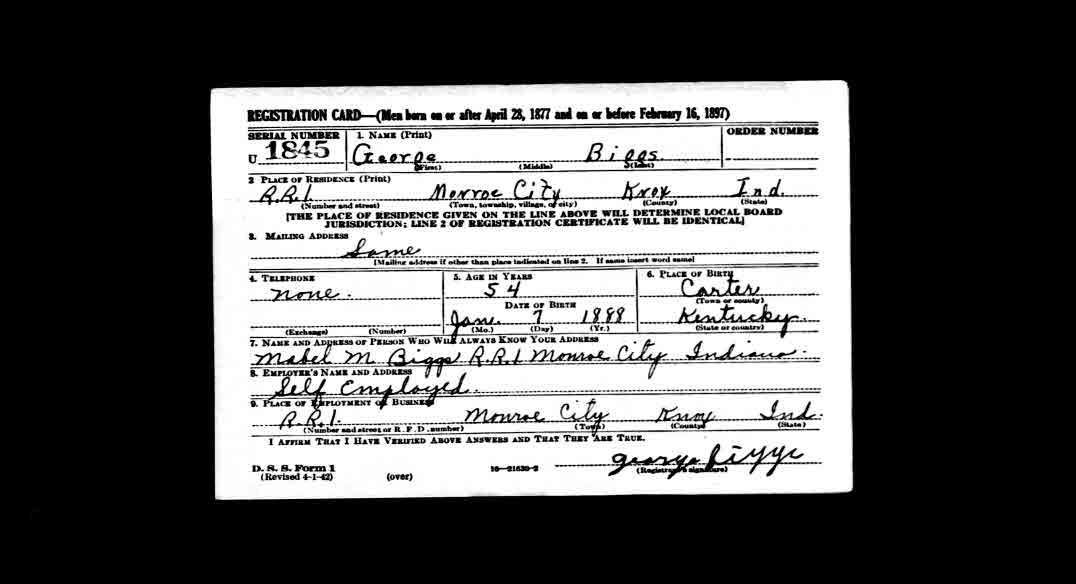 REGISTRATION CARD—(Men born on or after April 28, 1877 and on or before February 16, 1897)
SERIAL NUMBER 1. NAME (Print) ORDER NUMBER
U 1845 George Biggs
(First) (Middle) (Last)
2 PLACE OF RESIDENCE (Print)
R.R.1. Monroe City Knox Ind.
(Number and street) (Town, township, village, or city) (County) (State)
[THE PLACE OF RESIDENCE GIVEN ON THE LINE ABOVE WILL DETERMINE LOCAL BOARD
JURISDICTION; LINE 2 OF REGISTRATION CERTIFICATE WILL BE IDENTICAL]
3. MAILING ADDRESS
Same
[Mailing address if other than place indicated on line 2. If same insert word same]
4. TELEPHONE 5. AGE IN YEARS 6. PLACE OF BIRTH
none. 54 Carter
DATE OF BIRTH (Town or county)
Jan. 7 1888 Kentucky.
(Exchange) (Number) (Mo.) (Day) (Yr.) (State or country)
7. NAME AND ADDRESS OF PERSON WHO WILL ALWAYS KNOW YOUR ADDRESS
Mabel M. Biggs R.R.1 Monroe City Indiana.
8. EMPLOYER'S NAME AND ADDRESS
Self Employed.
9. PLACE OF EMPLOYMENT OR BUSINESS
R.R.1. Monroe City Knox Ind.
(Number and street or R. F. D. number) (Town) (County) (State)
I AFFIRM THAT I HAVE VERIFIED ABOVE ANSWERS AND THAT THEY ARE TRUE.
George Biggs
D. S. S. Form 1 16—21630-2 (Registrant's signature)
(Revised 4-1-42) (over)